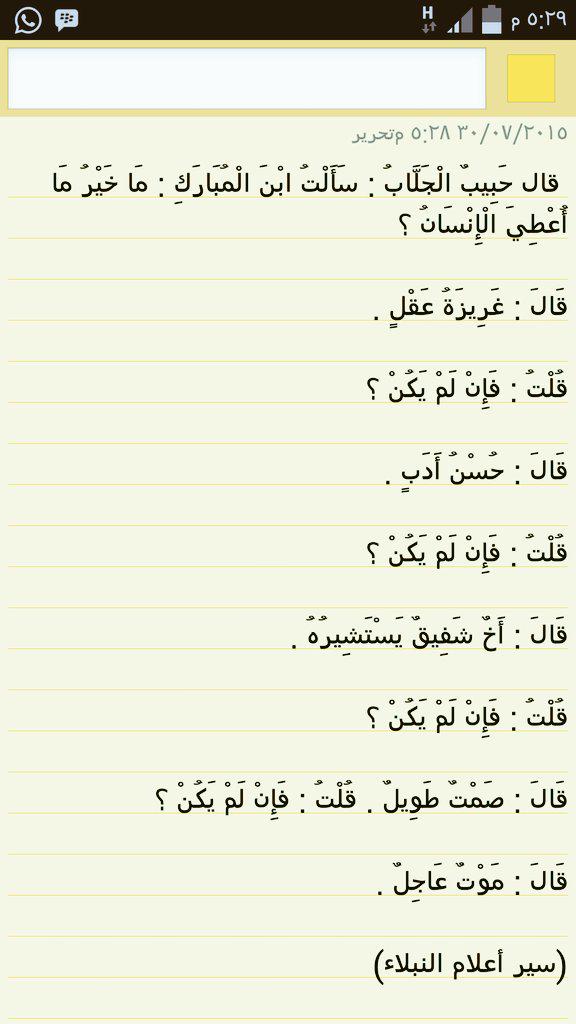 ٥:٢٩ م
٣٠/٠٧/٢٠١٥ ٥:٢٨ متحرير
قال حَبِيبٌ الْجَلَّابُ : سَأَلْتُ ابْنَ الْمُبَارَكِ : مَا خَيْرُ مَا
أُعْطِيَ الْإِنْسَانُ ؟
قَالَ : غَرِيزَةُ عَقْلٍ .
قُلْتُ : فَإِنْ لَمْ يَكُنْ ؟
قَالَ : حُسْنُ أَدَبٍ .
قُلْتُ : فَإِنْ لَمْ يَكُنْ ؟
قَالَ : أَخٌ شَفِيقٌ يَسْتَشِيرُهُ .
قُلْتُ : فَإِنْ لَمْ يَكُنْ ؟
قَالَ : صَمْتٌ طَوِيلٌ . قُلْتُ : فَإِنْ لَمْ يَكُنْ ؟
قَالَ : مَوْتٌ عَاجِلٌ .
(سير أعلام النبلاء)